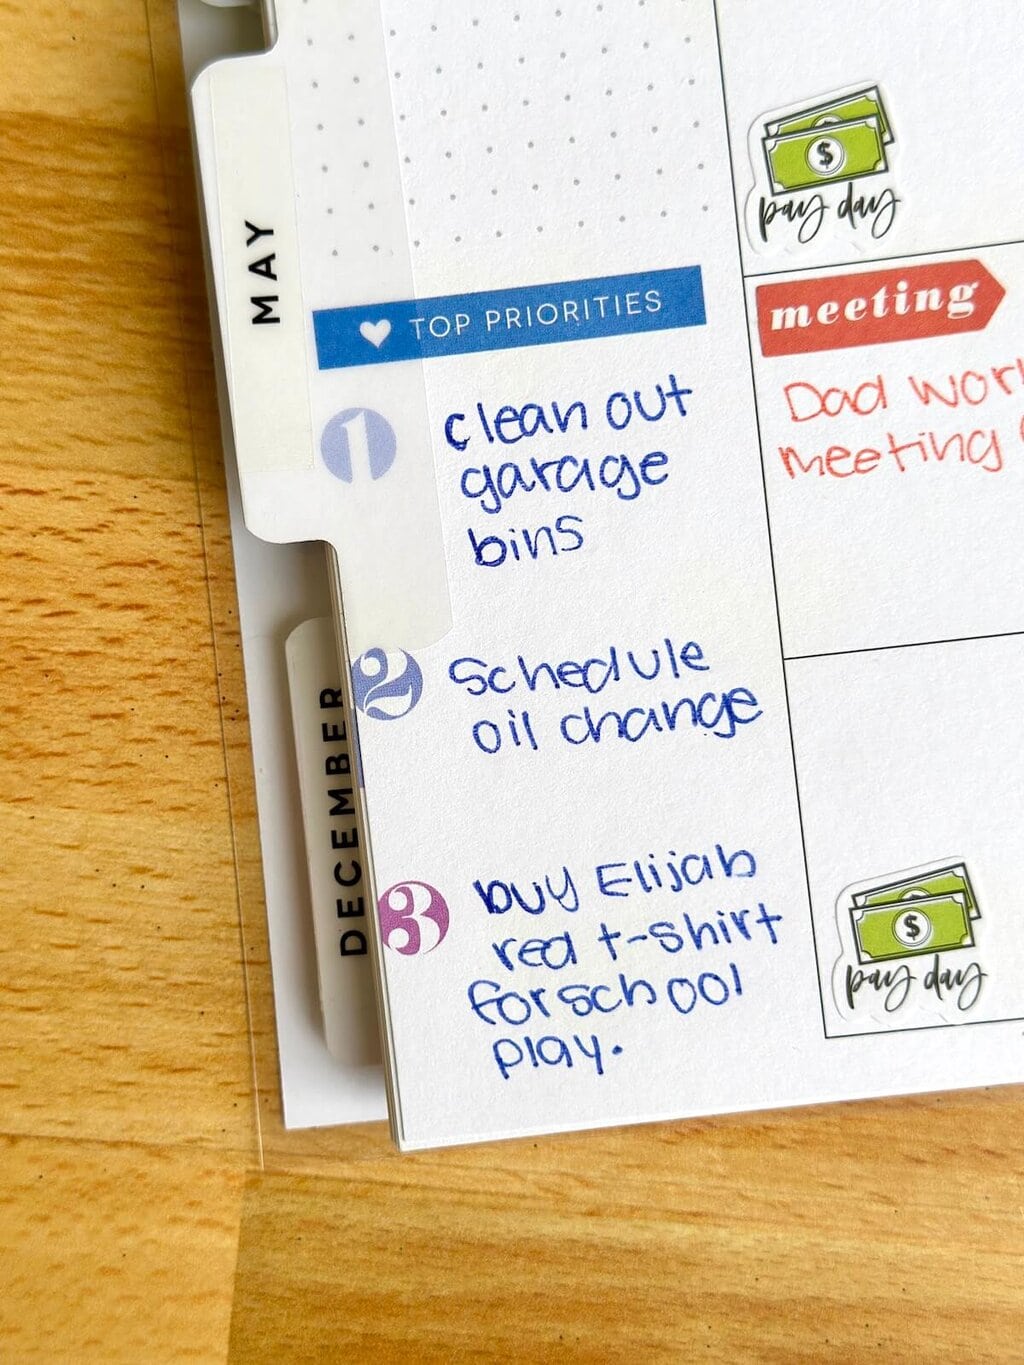 MAY
DECEMBER
TOP PRIORITIES
1 clean out
garage
bins
2 Schedule
oil change
3 buy Elijab
red t-shirt
for school
play.
$
pay day
meeting
Dad
meeting
$
pay day